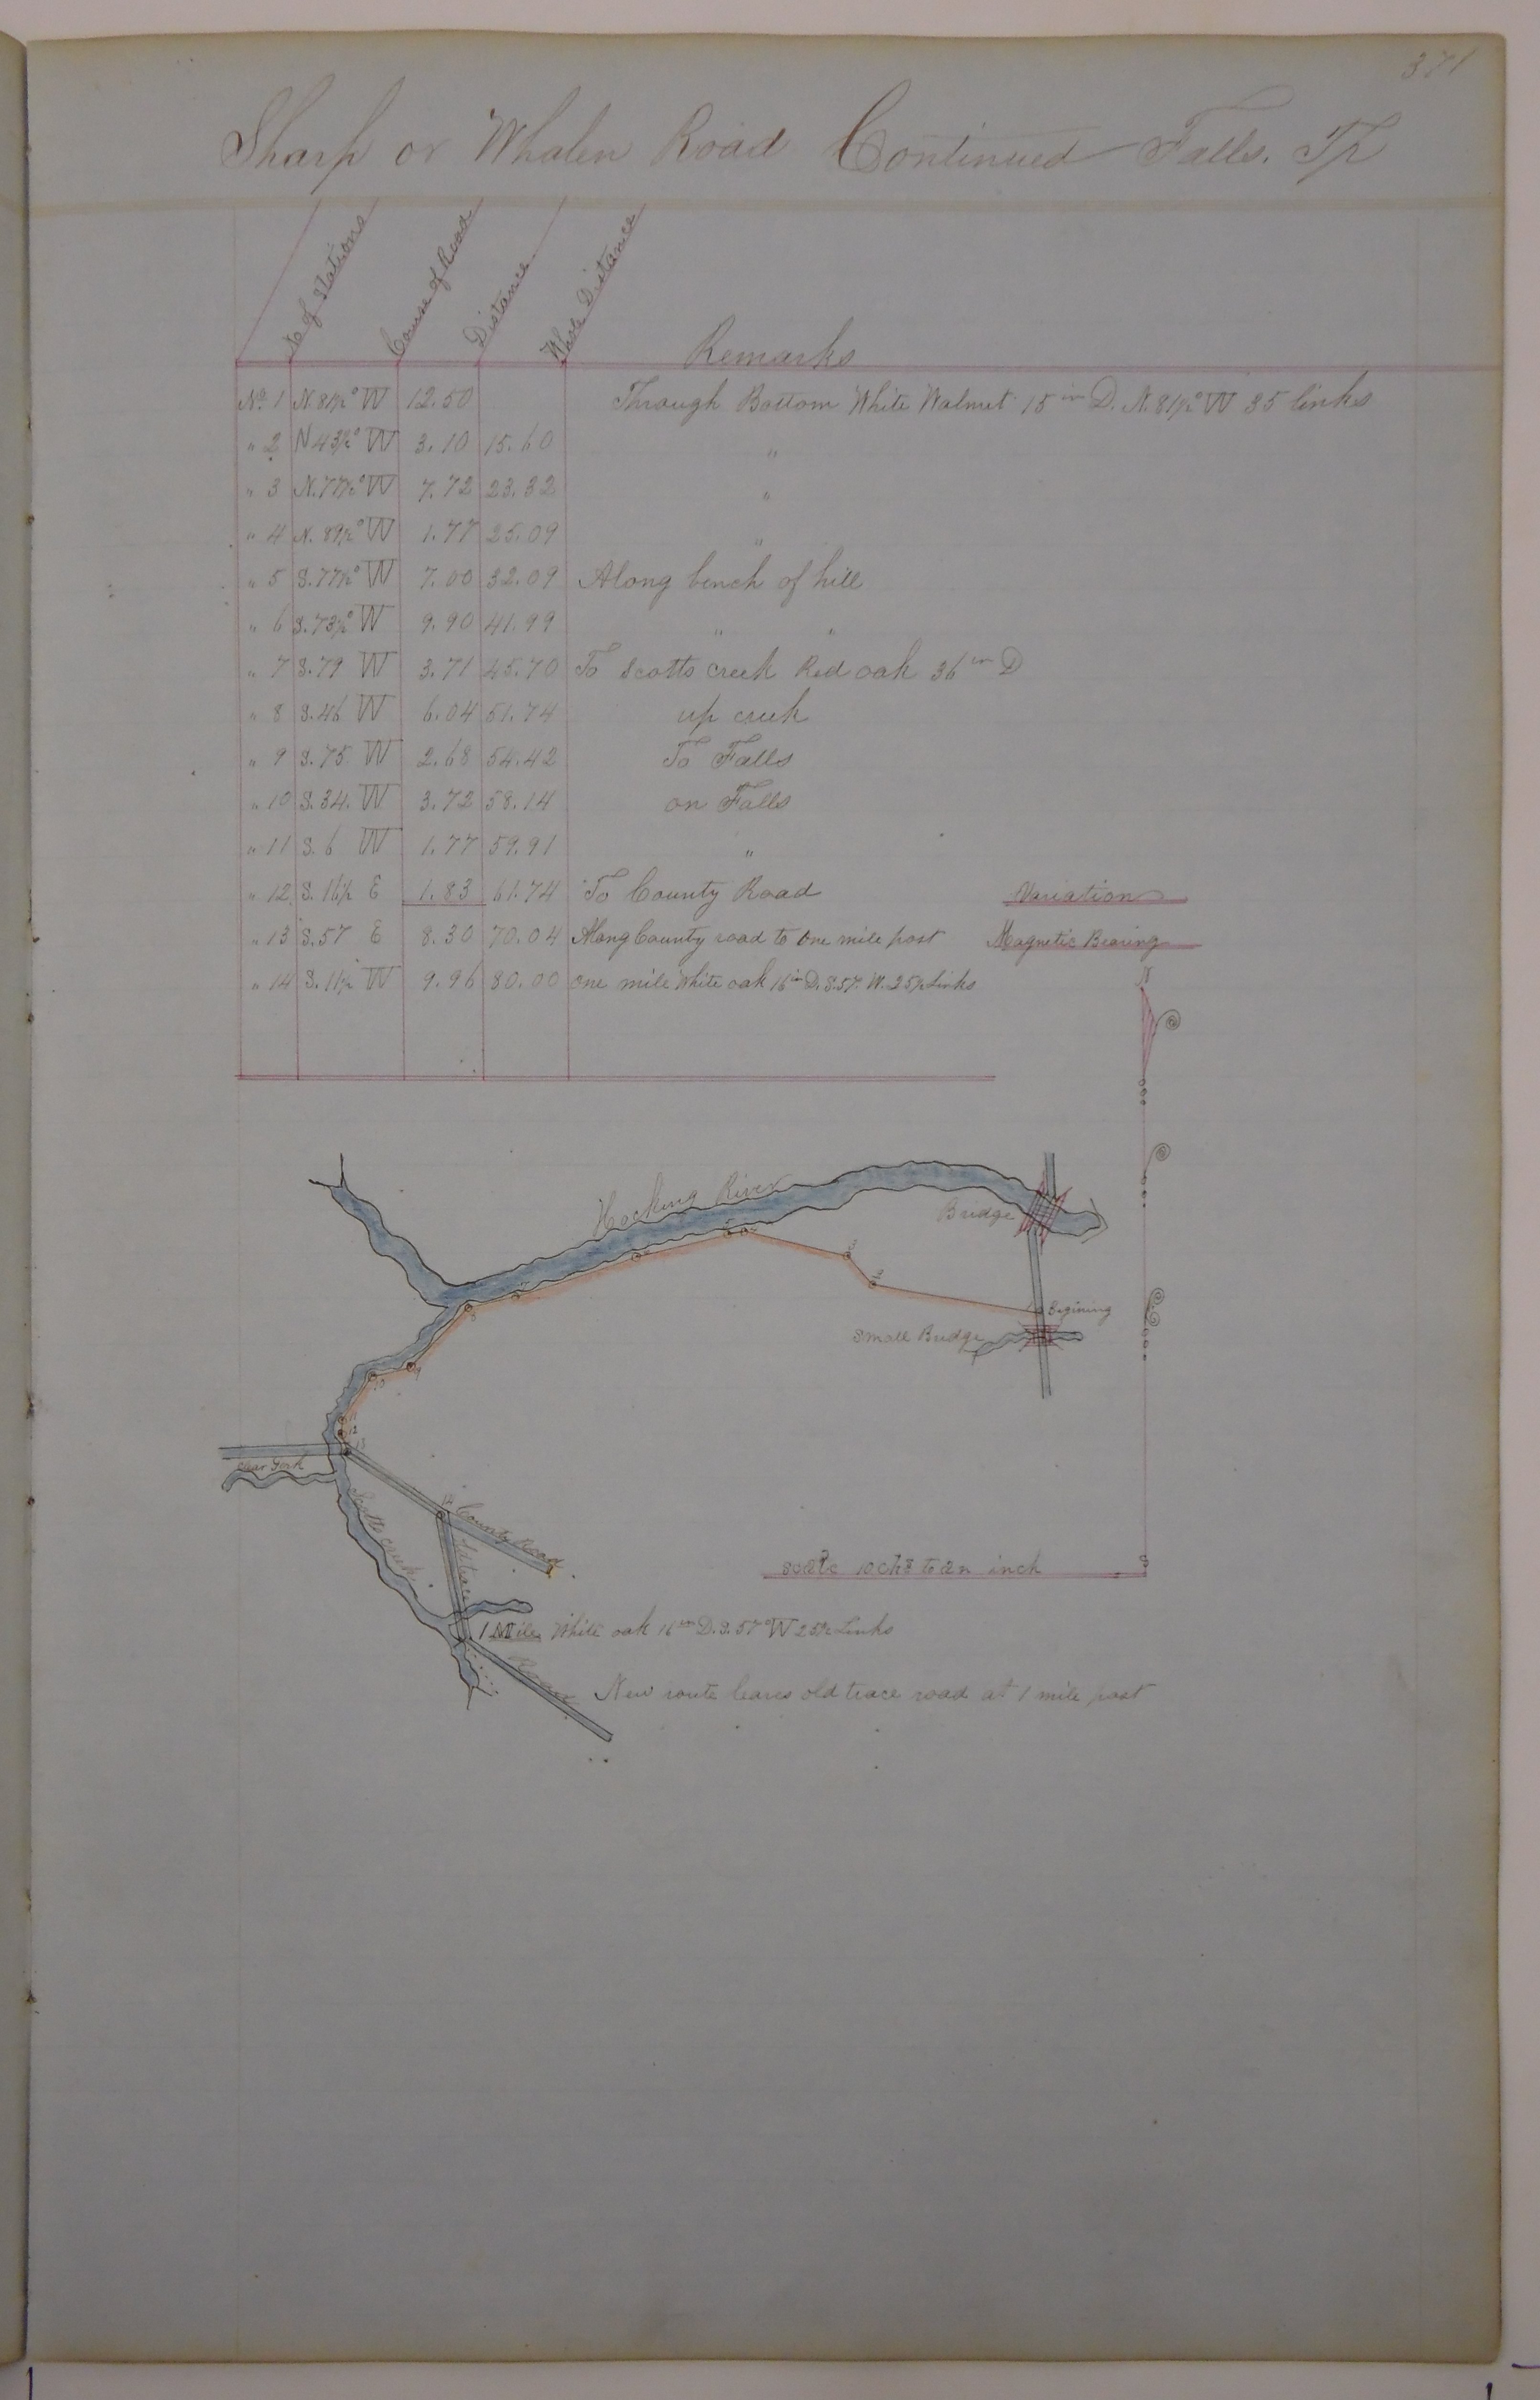 371
Sharp or Whalen Road Continued Falls. Tp
No of Stations Course of Road Distance Whole Distance Remarks
No. 1 N. 81½° W 12.50 Through Bottom White Walnut 15 in D. N. 81½° W 35 links
" 2 N 43½° W 3.10 15.60 "
" 3 N. 77½° W 7.72 23.32 "
" 4 N. 89½° W 1.77 25.09 "
" 5 S. 77½° W 7.00 32.09 Along bench of hill
" 6 S. 73½° W 9.90 41.99 " "
" 7 S. 79 W 3.71 45.70 To Scotts creek Red oak 36 in D
" 8 S. 46 W 6.04 51.74 up creek
" 9 S. 75 W 2.68 54.42 To Falls
" 10 S. 34. W 3.72 58.14 on Falls
" 11 S. 6 W 1.77 59.91 "
" 12 S. 16½ E 1.83 61.74 To County Road Variation
" 13 S. 57 E 8.30 70.04 Along County road to one mile post Magnetic Bearing
" 14 S. 11½ W 9.96 80.00 one mile White oak 16 in D. S. 57. W. 25½ Links
N
Hocking River
Bridge
5 4
6
3
7
2
8
1 Begining
Small Bridge
9
10
11
12
13
Clear Fork
14
County Road
Scotts creek
Old trace
S
Scale 10 chs to an inch
1 Mile White oak 16 in D. S. 57° W 25½ Links
New route leaves old trace road at 1 mile post